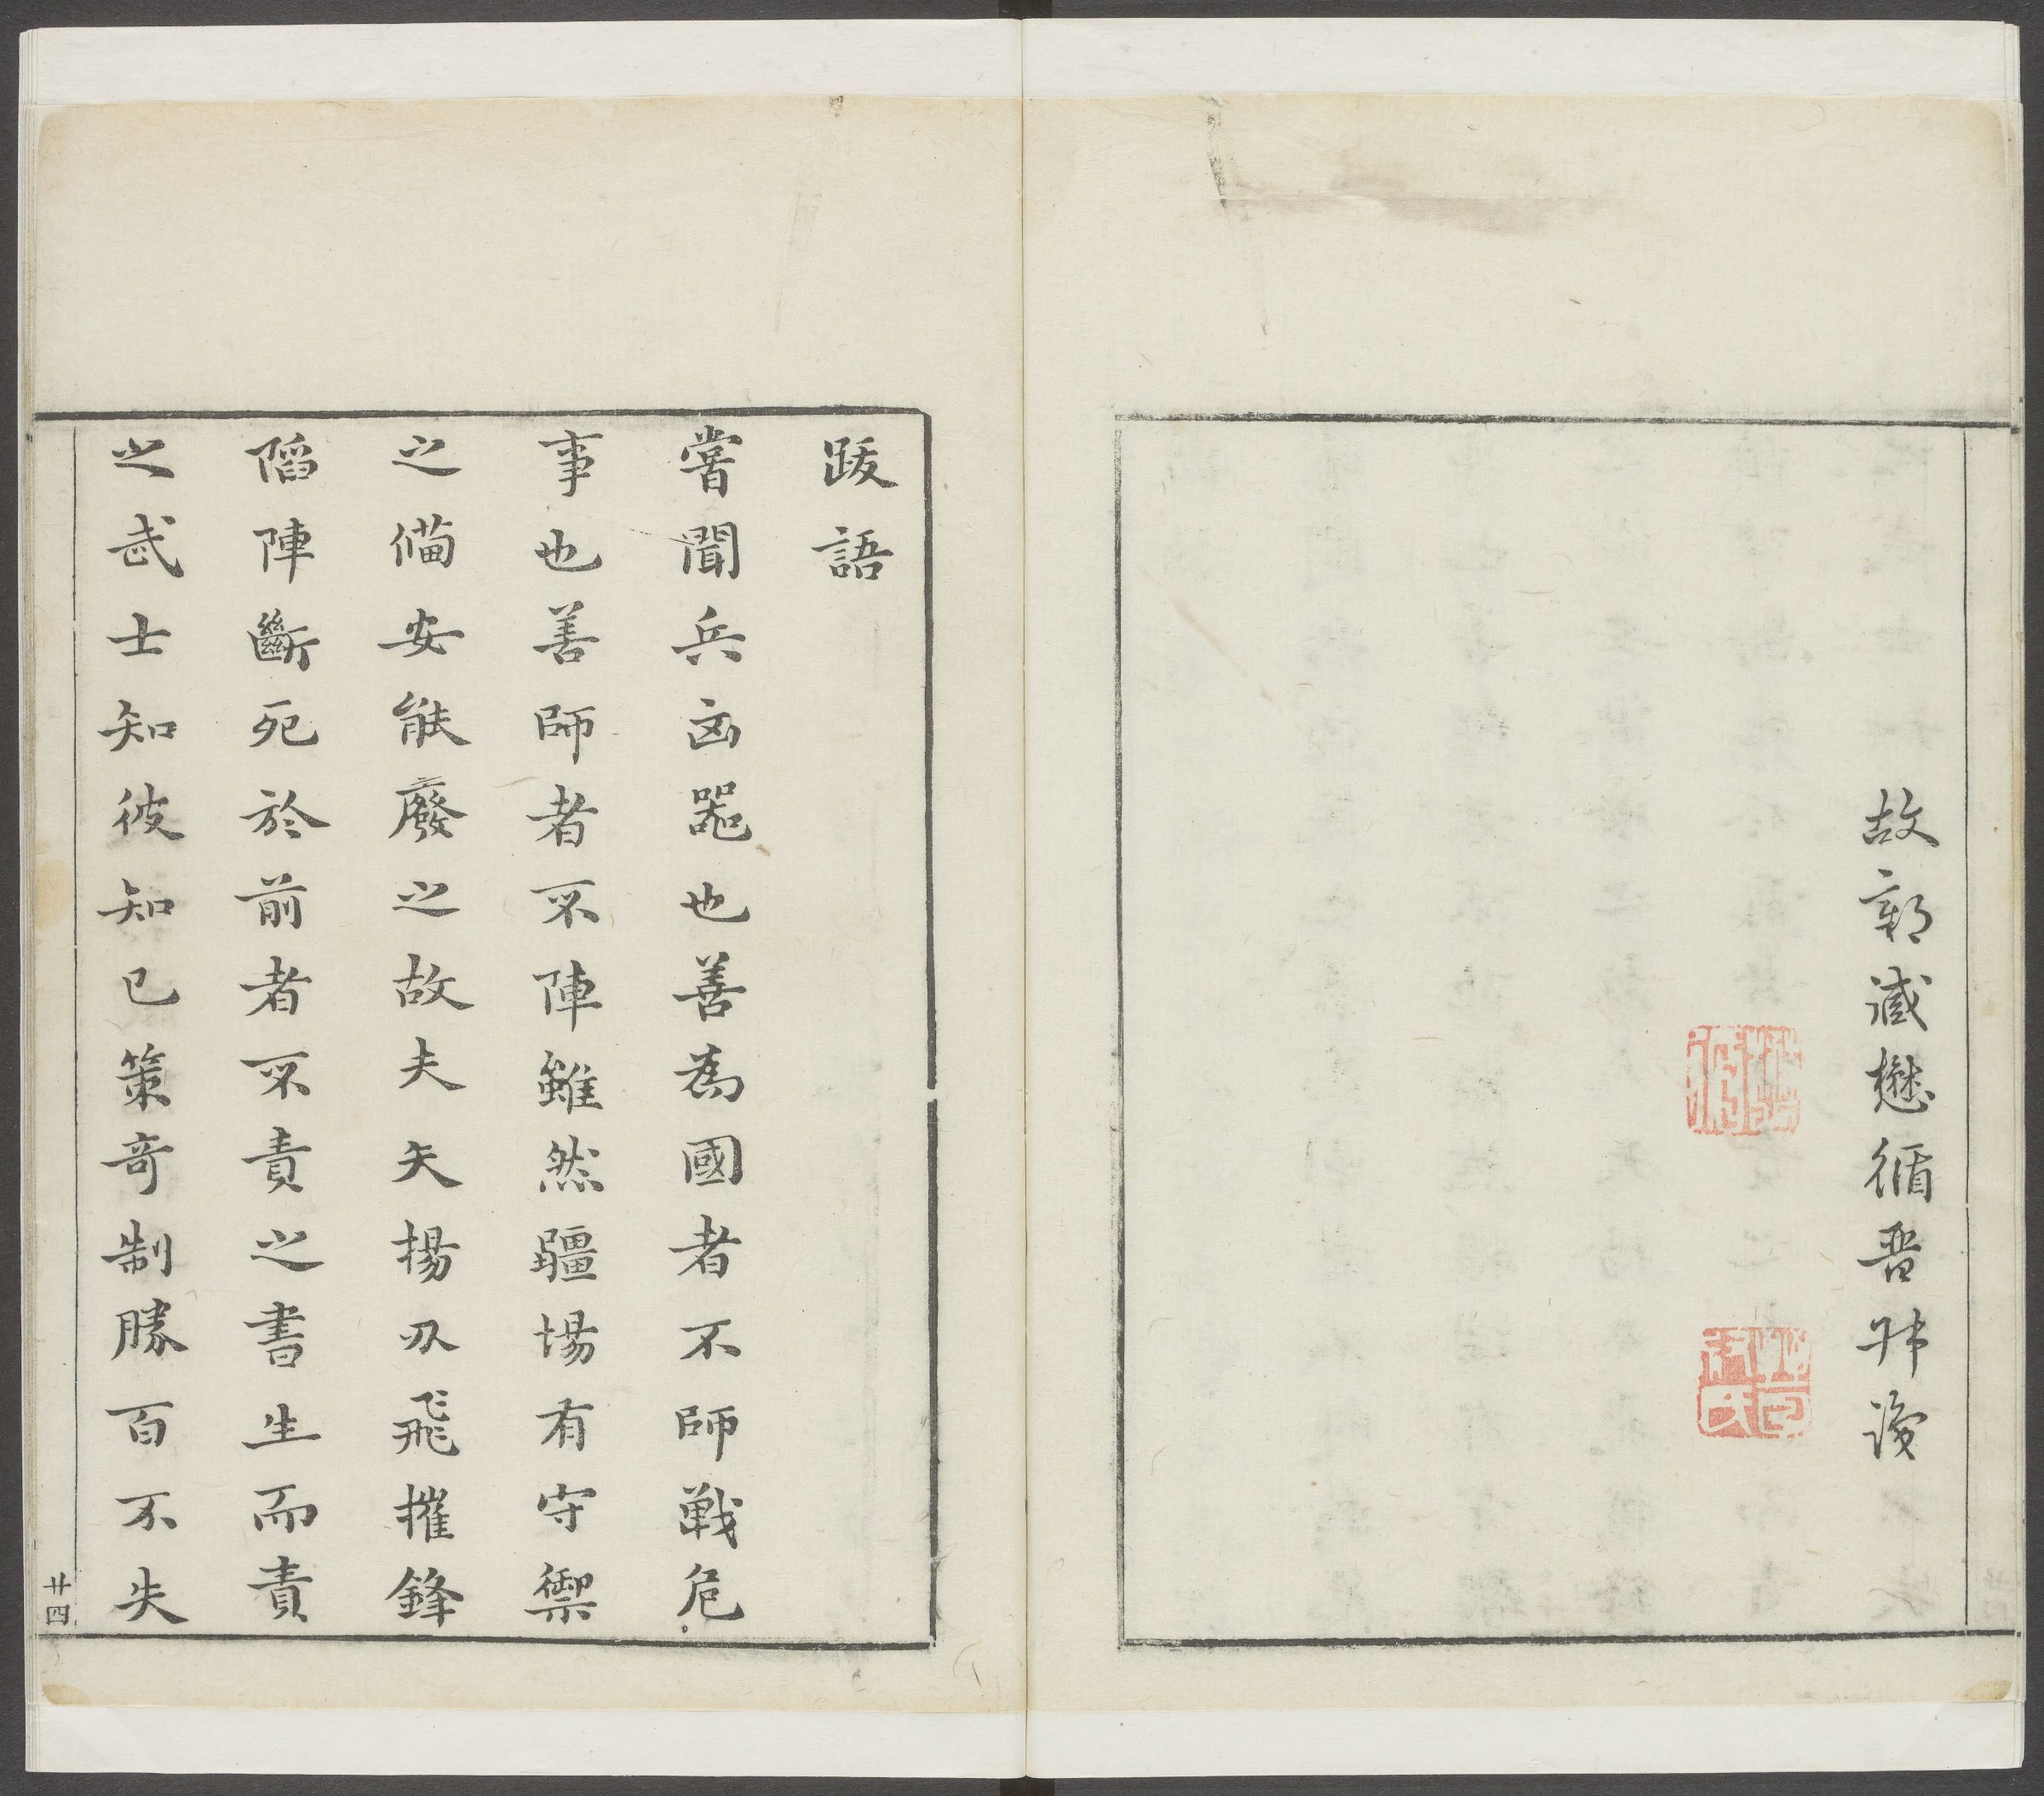 故鄣臧懋循晉叔譔
跋語
嘗聞兵凶噐也善為國者不師戰危
事也善師者不陣雖然疆場有守禦
之備安能廢之故夫矢揚刃飛摧鋒
䧟陣斷死於前者不責之書生而責
之武士知彼知己策奇制勝百不失
廿四